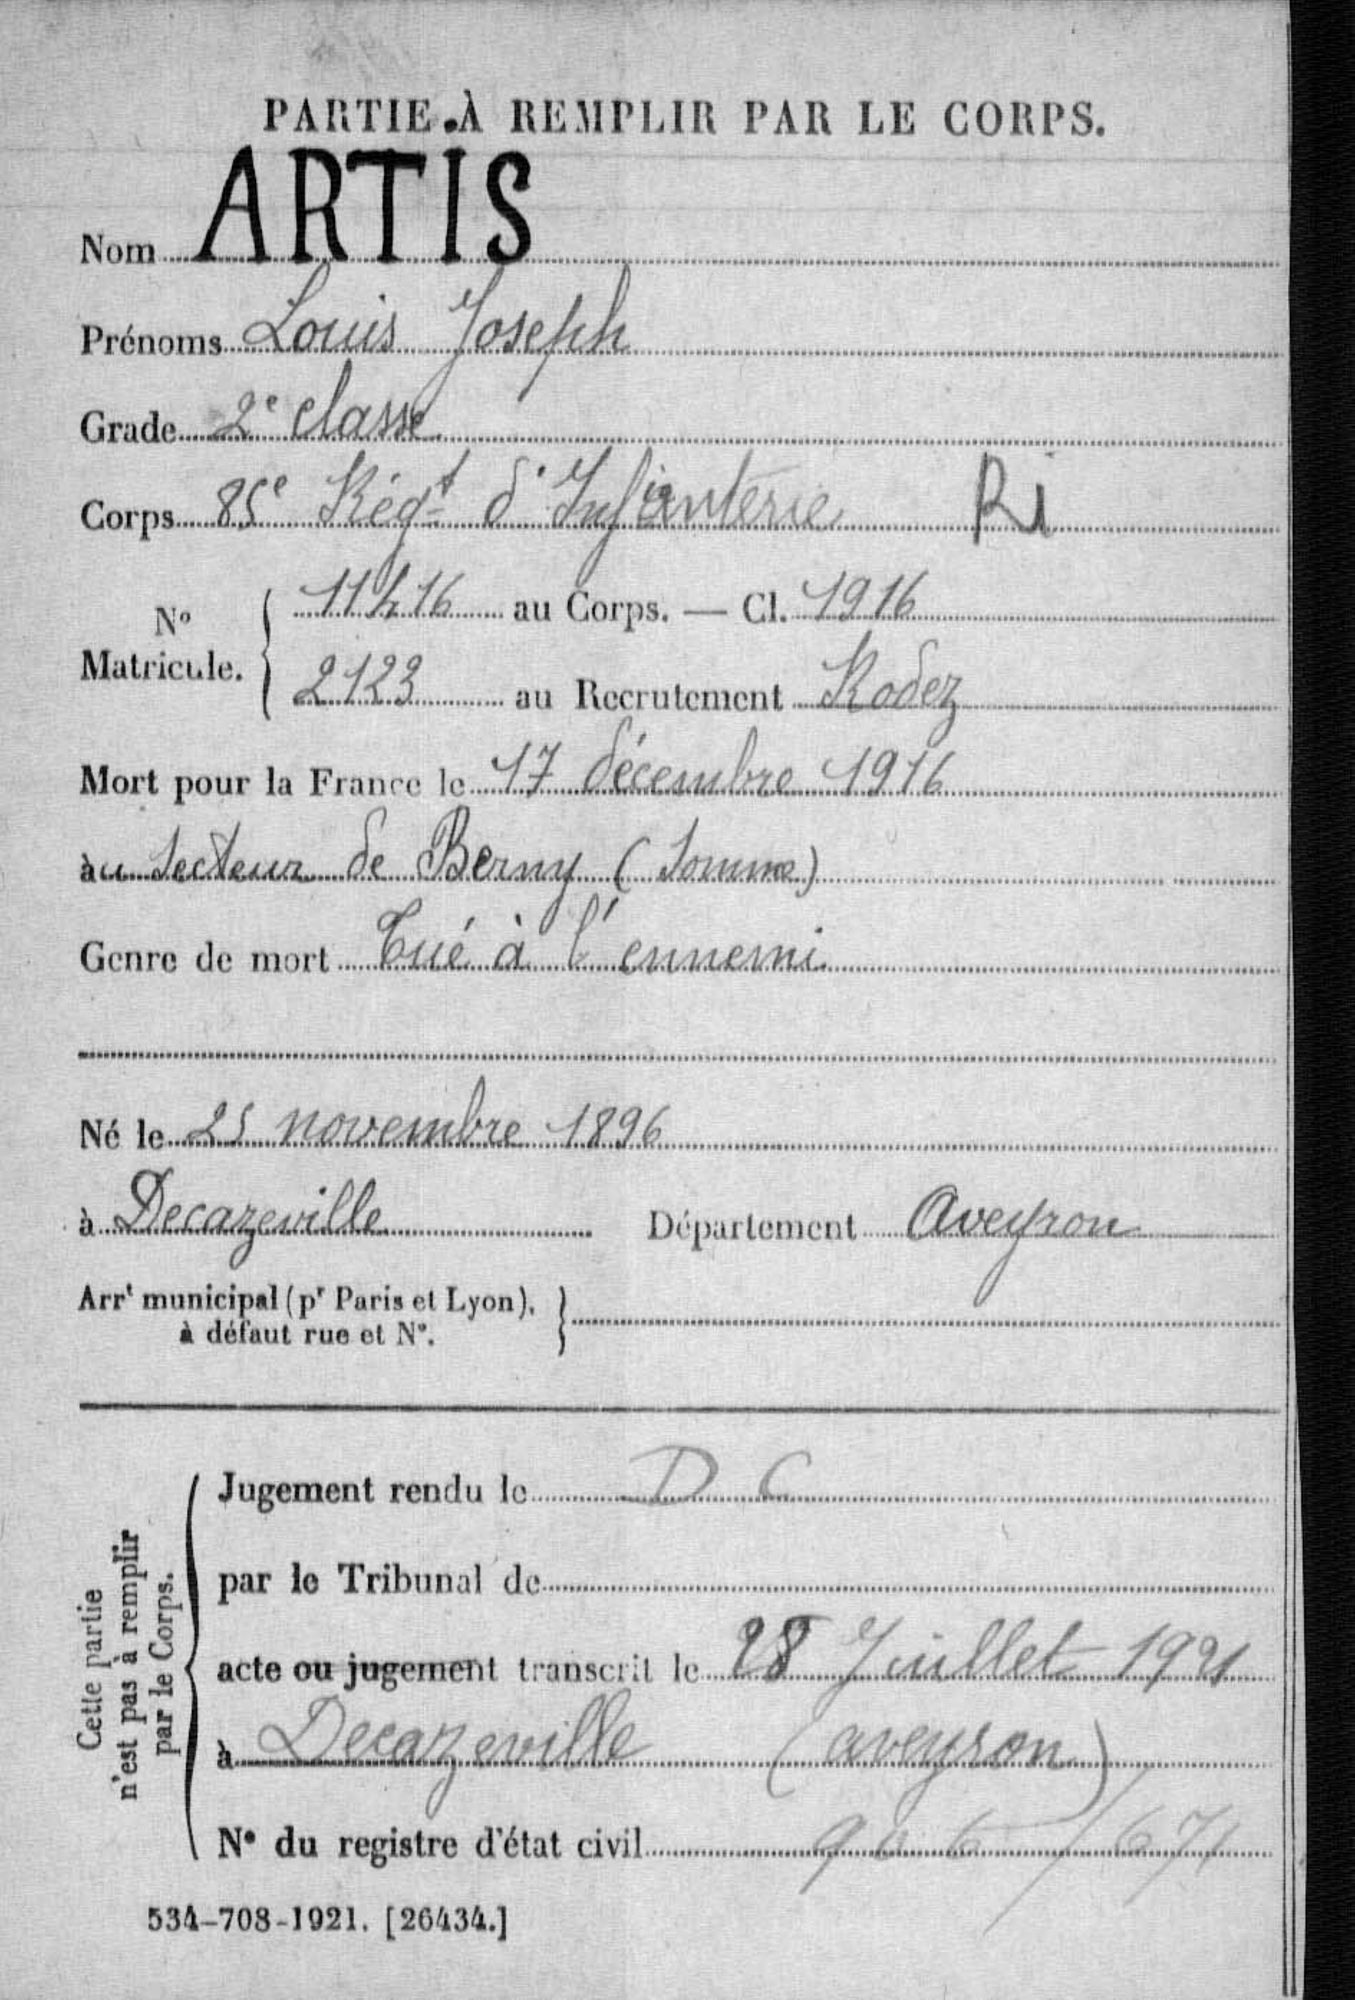 PARTIE À REMPLIR PAR LE CORPS.
Nom ARTIS
Prénoms Louis Joseph
Grade 2e classe
Corps 85e Régt d'Infanterie Ri
No Matricule. 11416 au Corps. — Cl. 1916
2123 au Recrutement Rodez
Mort pour la France le 17 décembre 1916
àu secteur de Berny (Somme)
Genre de mort Tué à l'ennemi
Né le 25 novembre 1896
à Decazeville Département Aveyron
Arrt municipal (pr Paris et Lyon), à défaut rue et No.
Cette partie n'est pas à remplir par le Corps.
Jugement rendu le D C
par le Tribunal de
acte ou jugement transcrit le 28 Juillet 1921
à Decazeville (aveyron)
No du registre d'état civil 906/671
534-708-1921. [26434.]